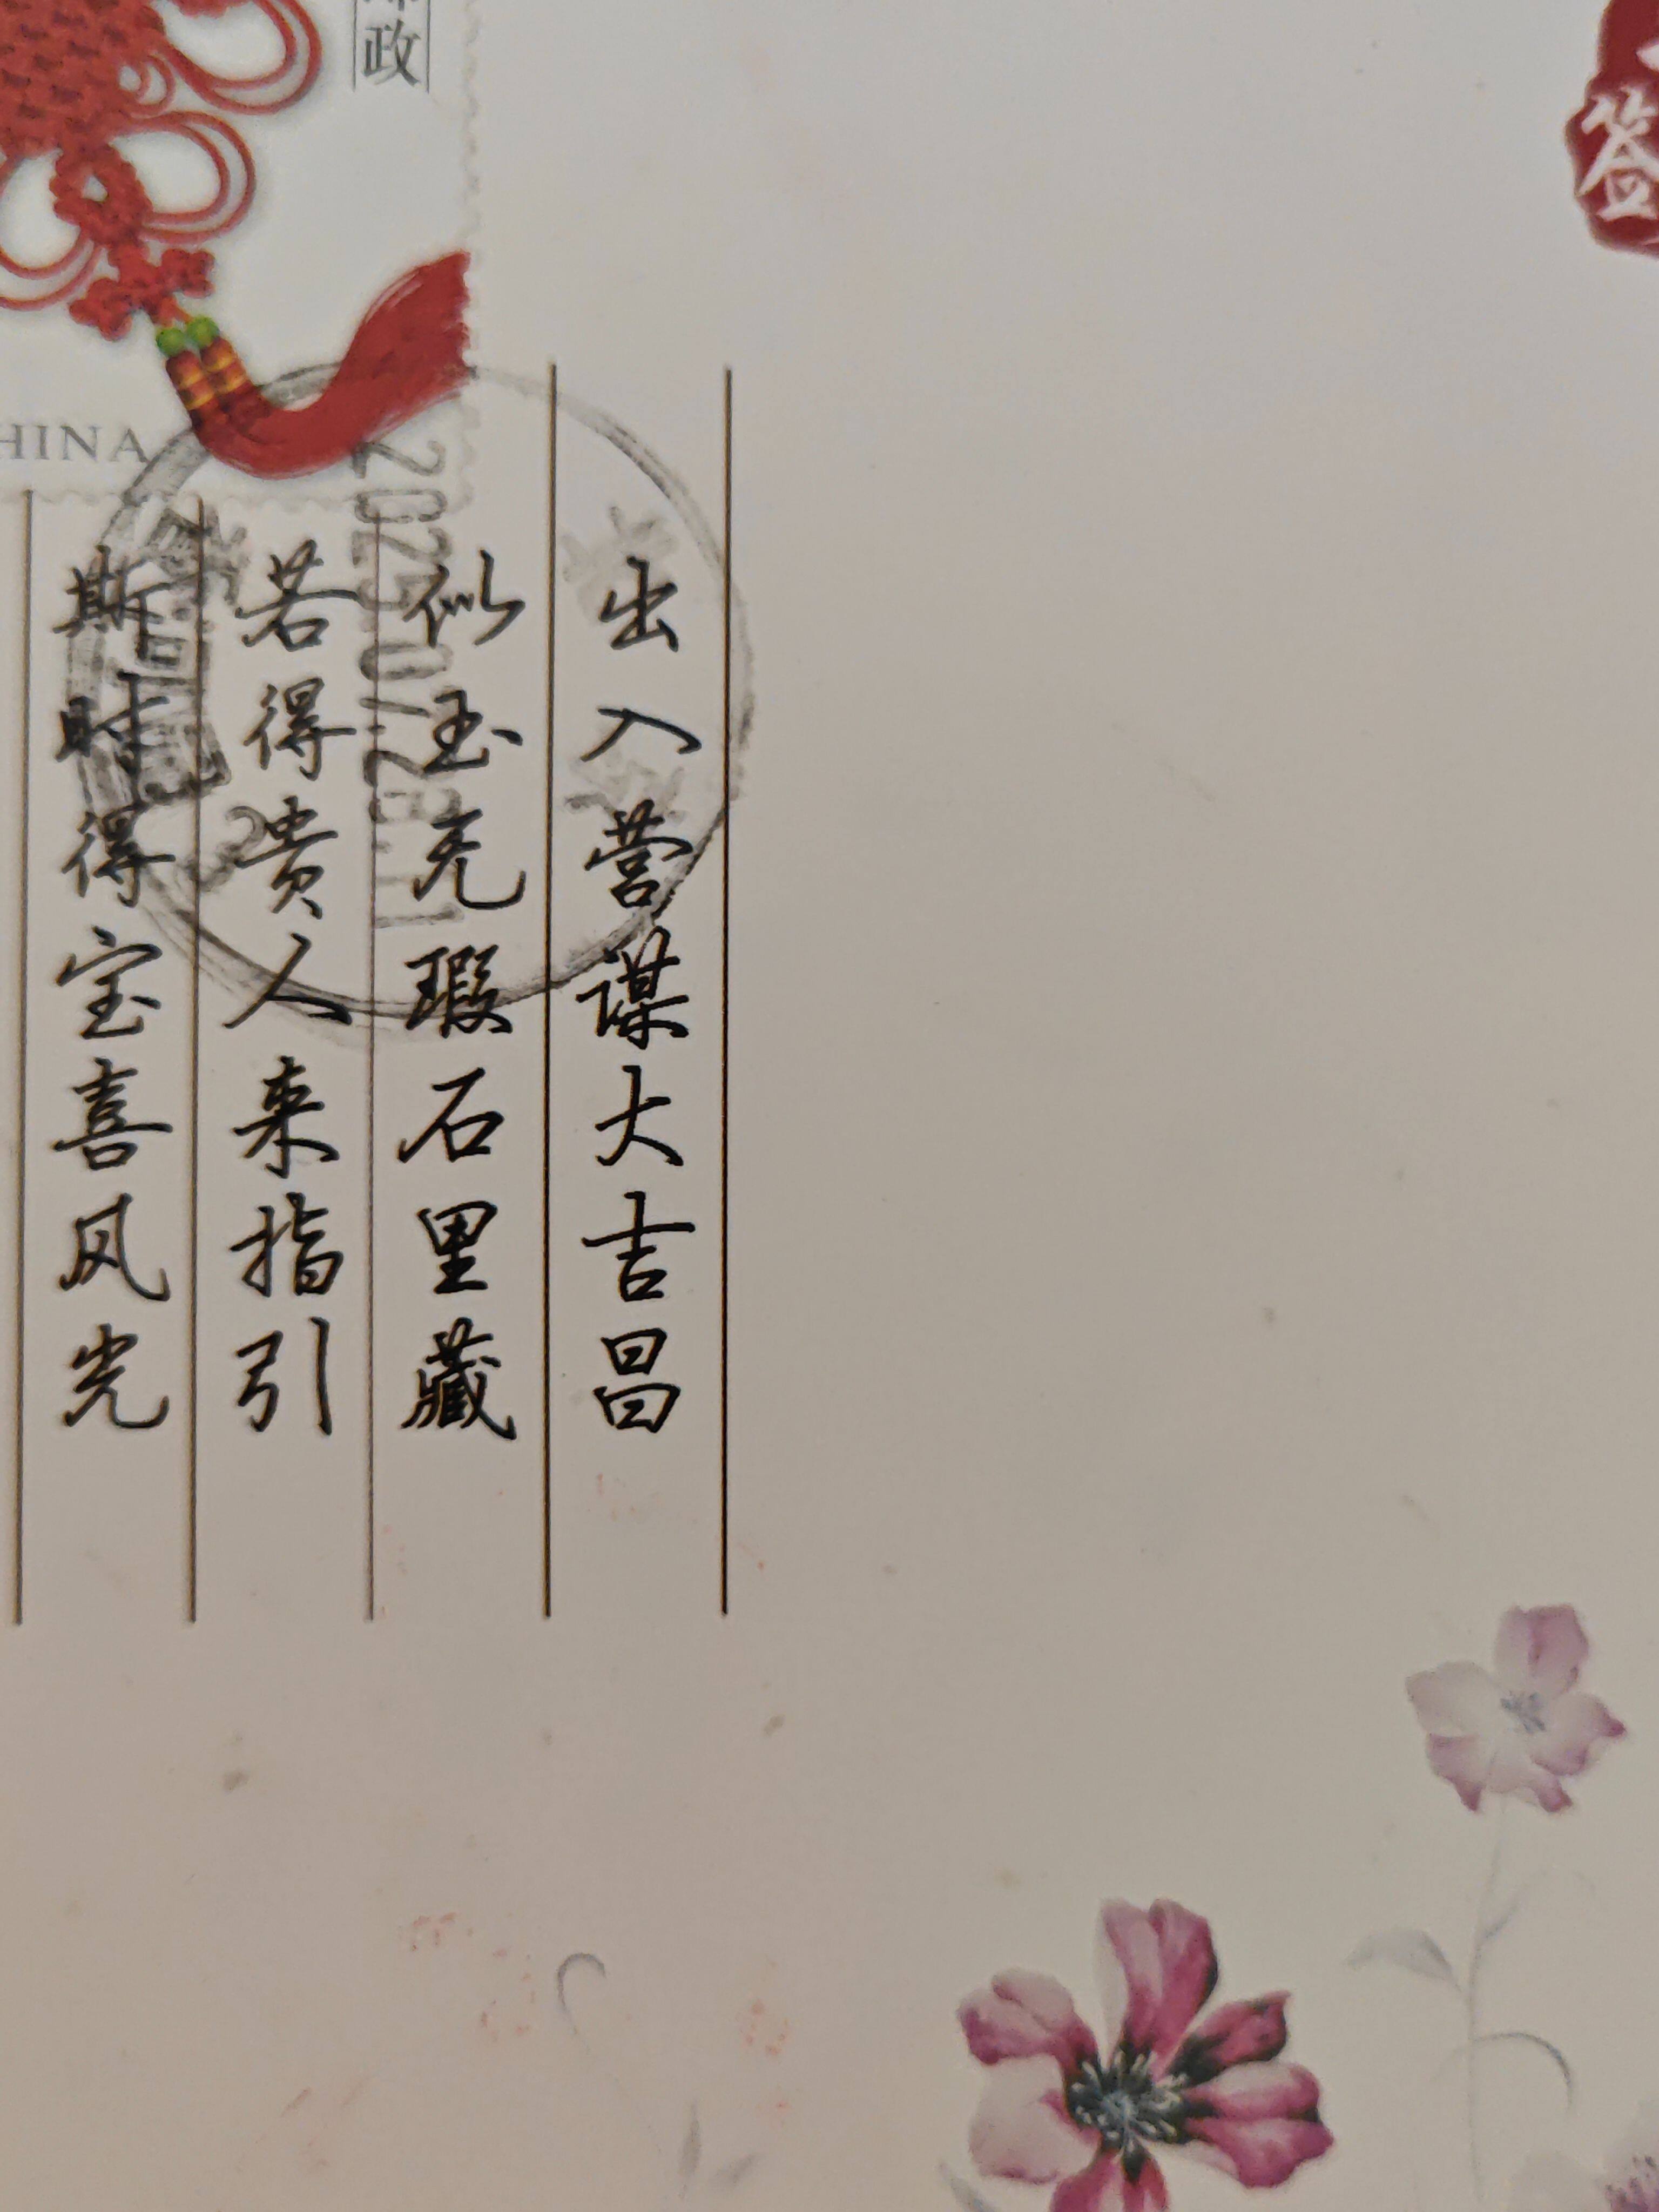 出入营谋大吉昌
似玉充瑕石里藏
若得贵人来指引
斯时得宝喜风光
政
HINA
签